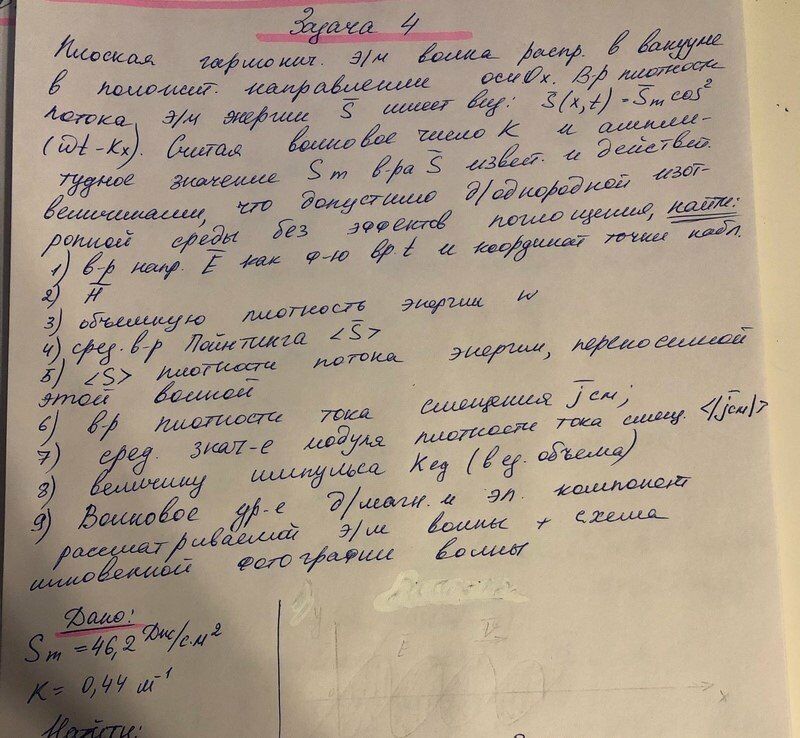 Задача 4
Плоская гармонич. э/м волна распр. в вакууме
в положит. направлении оси Ox. В-р плотности
потока э/м энергии S̄ имеет вид: S̄(x,t) = S̄m cos²
(ωt - Kx). Считая волновое число K и ампли-
тудное значение Sm в-ра S̄ извест. и действит.
величинами, что допустимо д/однородной изот-
ропной среды без эффектов поглощения, найти:
1) в-р напр. Ē как ф-ю вр. t и координат точки набл.
2) H̄
3) объемную плотность энергии w
4) сред. в-р Пойнтинга <S̄>
5) <S> плотности потока энергии, переносимой
этой волной
6) в-р плотности тока смещения j̄см;
7) сред. знач-е модуля плотности тока смещ. <|j̄см|>
8) величину импульса Kед (в ед. объема)
9) Волновое ур-е д/магн. и эл. компонент
рассматриваемой э/м волны + схема
мгновенной фотографии волны
Дано:
Sm = 46,2 Дж/с·м²
K = 0,44 м⁻¹
Найти:
y
E
V
x